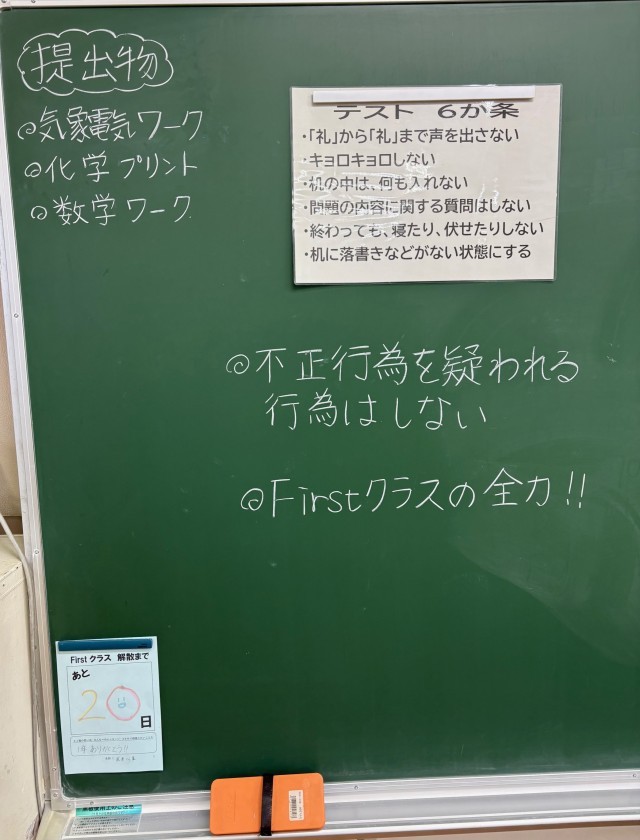 提出物
◎気象電気ワーク
◎化学プリント
◎数学ワーク
テスト 6か条
・「礼」から「礼」まで声を出さない
・キョロキョロしない
・机の中は、何も入れない
・問題の内容に関する質問はしない
・終わっても、寝たり、伏せたりしない
・机に落書きなどがない状態にする
◎不正行為を疑われる
行為はしない
◎Firstクラスの全力!!
First クラス 解散まで
あと
20日
1年ありがとう!!